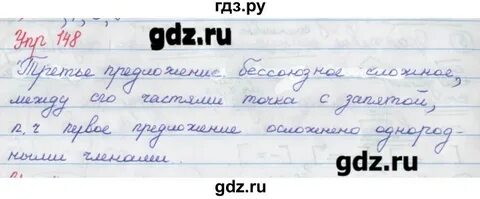 гдз.ру
gdz.ru
Упр 148
Третье предложение бессоюзное сложное,
между его частями точка с запятой,
п, ч первое предложение осложнено однород-
ными членами.
gdz.ru
gdz.ru